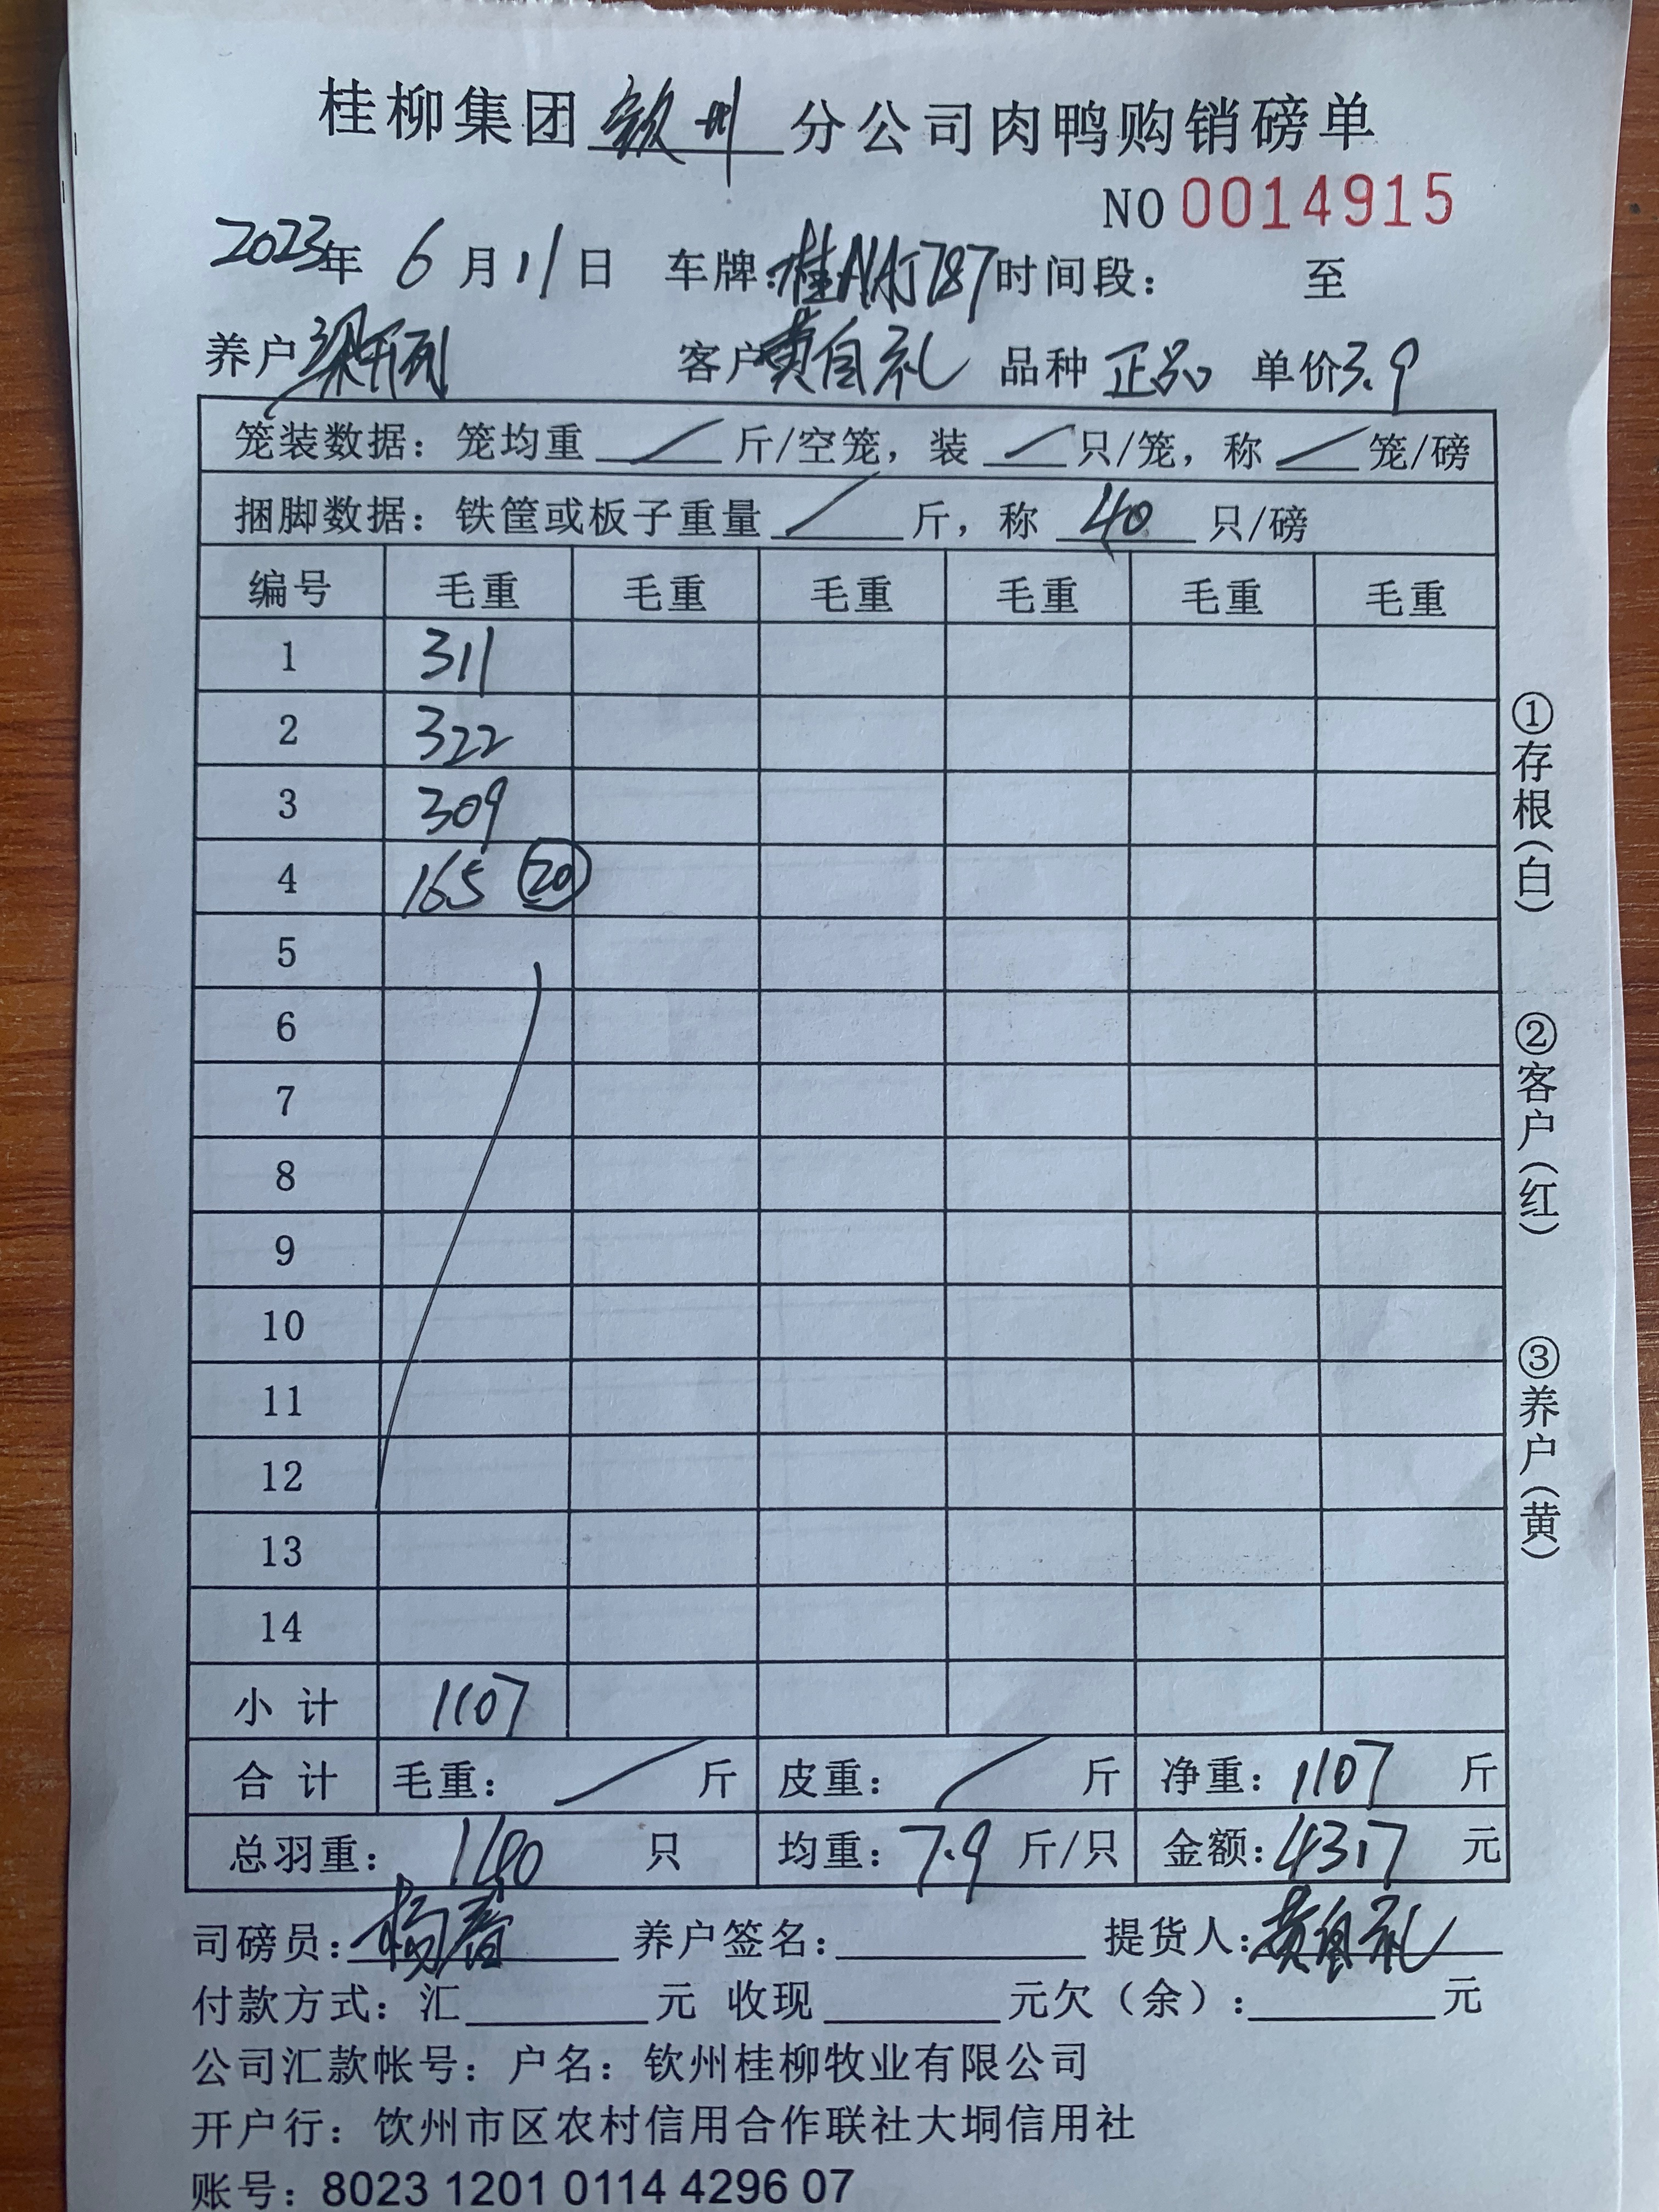 桂柳集团 钦州 分公司肉鸭购销磅单
NO 0014915
2023年 6月11日 车牌:桂NAJ787 时间段: 至
养户 客户黄自礼 品种 正品 单价3.9
笼装数据:笼均重 / 斤/空笼,装 / 只/笼,称 / 笼/磅
捆脚数据:铁筐或板子重量 / 斤,称 40 只/磅
编号 毛重 毛重 毛重 毛重 毛重 毛重
1 311
2 322
3 309
4 165 ⑳
5
6
7
8
9
10
11
12
13
14
小计 1107
合计 毛重: / 斤 皮重: / 斤 净重:1107 斤
总羽重: 140 只 均重:7.9 斤/只 金额:4317 元
司磅员:杨春 养户签名: 提货人:黄自礼
付款方式:汇 元 收现 元欠(余): 元
公司汇款帐号:户名:钦州桂柳牧业有限公司
开户行:钦州市区农村信用合作联社大垌信用社
账号:8023 1201 0114 4296 07
①存根(白)
②客户(红)
③养户(黄)